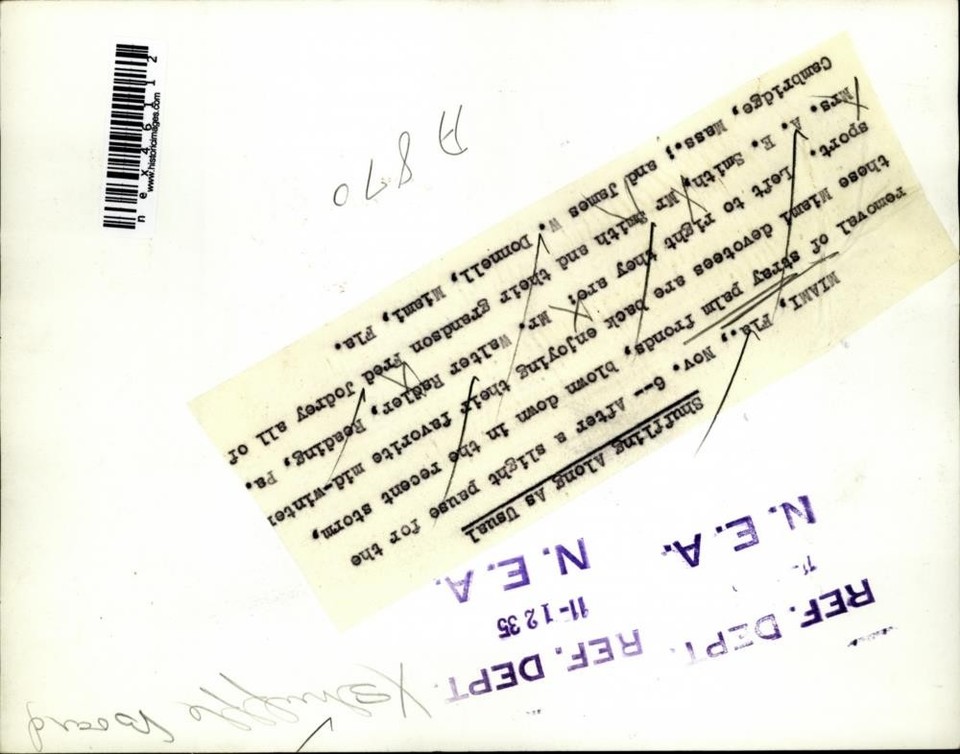 X Shuffle Board
REF. DEPT.
11-12 35
N. E. A.
REF. DEPT.
N. E. A.
Shuffling Along As Usual
MIAMI, Fla., Nov. 6-- After a slight pause for the
removal of stray palm fronds, blown down in the recent storm,
these Miami devotees are back enjoying their favorite mid-winter
sport. Left to right they are: Mr. Walter Radler, Reading, Pa.
Mrs. A. E. Smith, Mr Smith and their grandson Fred Jodrey all of
Cambridge, Mass.; and James W. Donnell, Miami, Fla.
A 870
www.historicimages.com
n e x 4 6 1 1 2